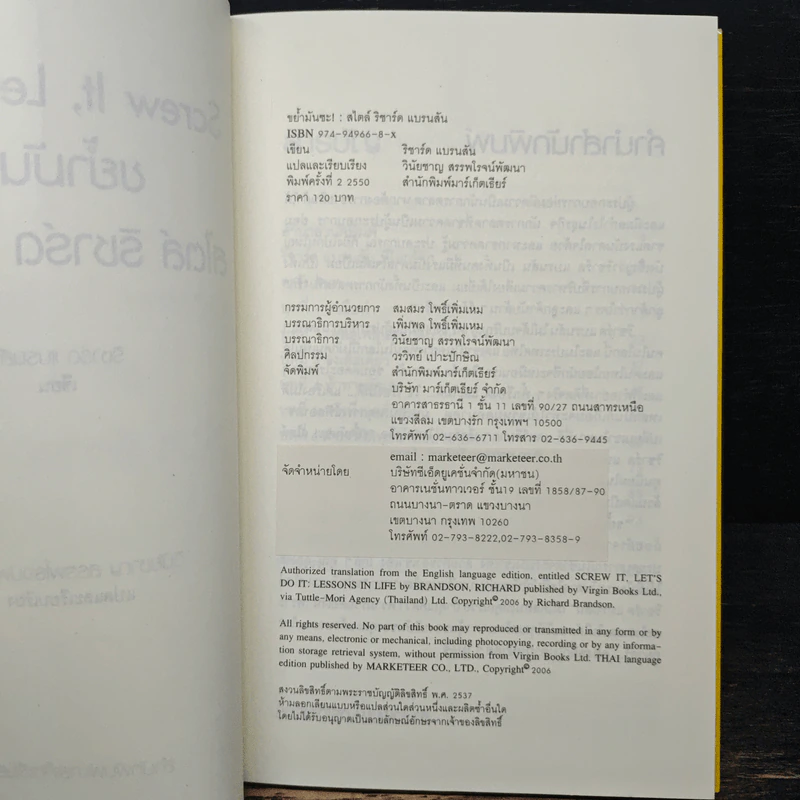 Screw It, Le
ขย้ำมัน
สไตล์ ริชาร์ด
ริชาร์ด แบรนสั
เขียน
ขย้ำมันซะ! : สไตล์ ริชาร์ด แบรนสัน
ISBN 974-94966-8-X
เขียน ริชาร์ด แบรนสัน
แปลและเรียบเรียง วินัยชาญ สรรพโรจน์พัฒนา
พิมพ์ครั้งที่ 2 2550 สำนักพิมพ์มาร์เก็ตเธียร์
ราคา 120 บาท
กรรมการผู้อำนวยการ สมสมร โพธิ์เพิ่มเหม
บรรณาธิการบริหาร เพิ่มพล โพธิ์เพิ่มเหม
บรรณาธิการ วินัยชาญ สรรพโรจน์พัฒนา
ศิลปกรรม วรวิทย์ เปาะปักษิณ
จัดพิมพ์ สำนักพิมพ์มาร์เก็ตเธียร์
บริษัท มาร์เก็ตเธียร์ จำกัด
อาคารสาธรธานี 1 ชั้น 11 เลขที่ 90/27 ถนนสาทรเหนือ
แขวงสีลม เขตบางรัก กรุงเทพฯ 10500
โทรศัพท์ 02-636-6711 โทรสาร 02-636-9445
email : marketeer@marketeer.co.th
จัดจำหน่ายโดย บริษัทซีเอ็ดยูเคชั่นจำกัด(มหาชน)
อาคารเนชั่นทาวเวอร์ ชั้น19 เลขที่ 1858/87-90
ถนนบางนา-ตราด แขวงบางนา
เขตบางนา กรุงเทพ 10260
โทรศัพท์ 02-793-8222,02-793-8358-9
Authorized translation from the English language edition, entitled SCREW IT, LET'S
DO IT: LESSONS IN LIFE by BRANDSON, RICHARD published by Virgin Books Ltd.,
via Tuttle-Mori Agency (Thailand) Ltd. Copyright© 2006 by Richard Brandson.
All rights reserved. No part of this book may reproduced or transmitted in any form or by
any means, electronic or mechanical, including photocopying, recording or by any informa-
tion storage retrieval system, without permission from Virgin Books Ltd. THAI language
edition published by MARKETEER CO., LTD., Copyright© 2006
สงวนลิขสิทธิ์ตามพระราชบัญญัติลิขสิทธิ์ พ.ศ. 2537
ห้ามลอกเลียนแบบหรือแปลส่วนใดส่วนหนึ่งและผลิตซ้ำอื่นใด
โดยไม่ได้รับอนุญาตเป็นลายลักษณ์อักษรจากเจ้าของลิขสิทธิ์